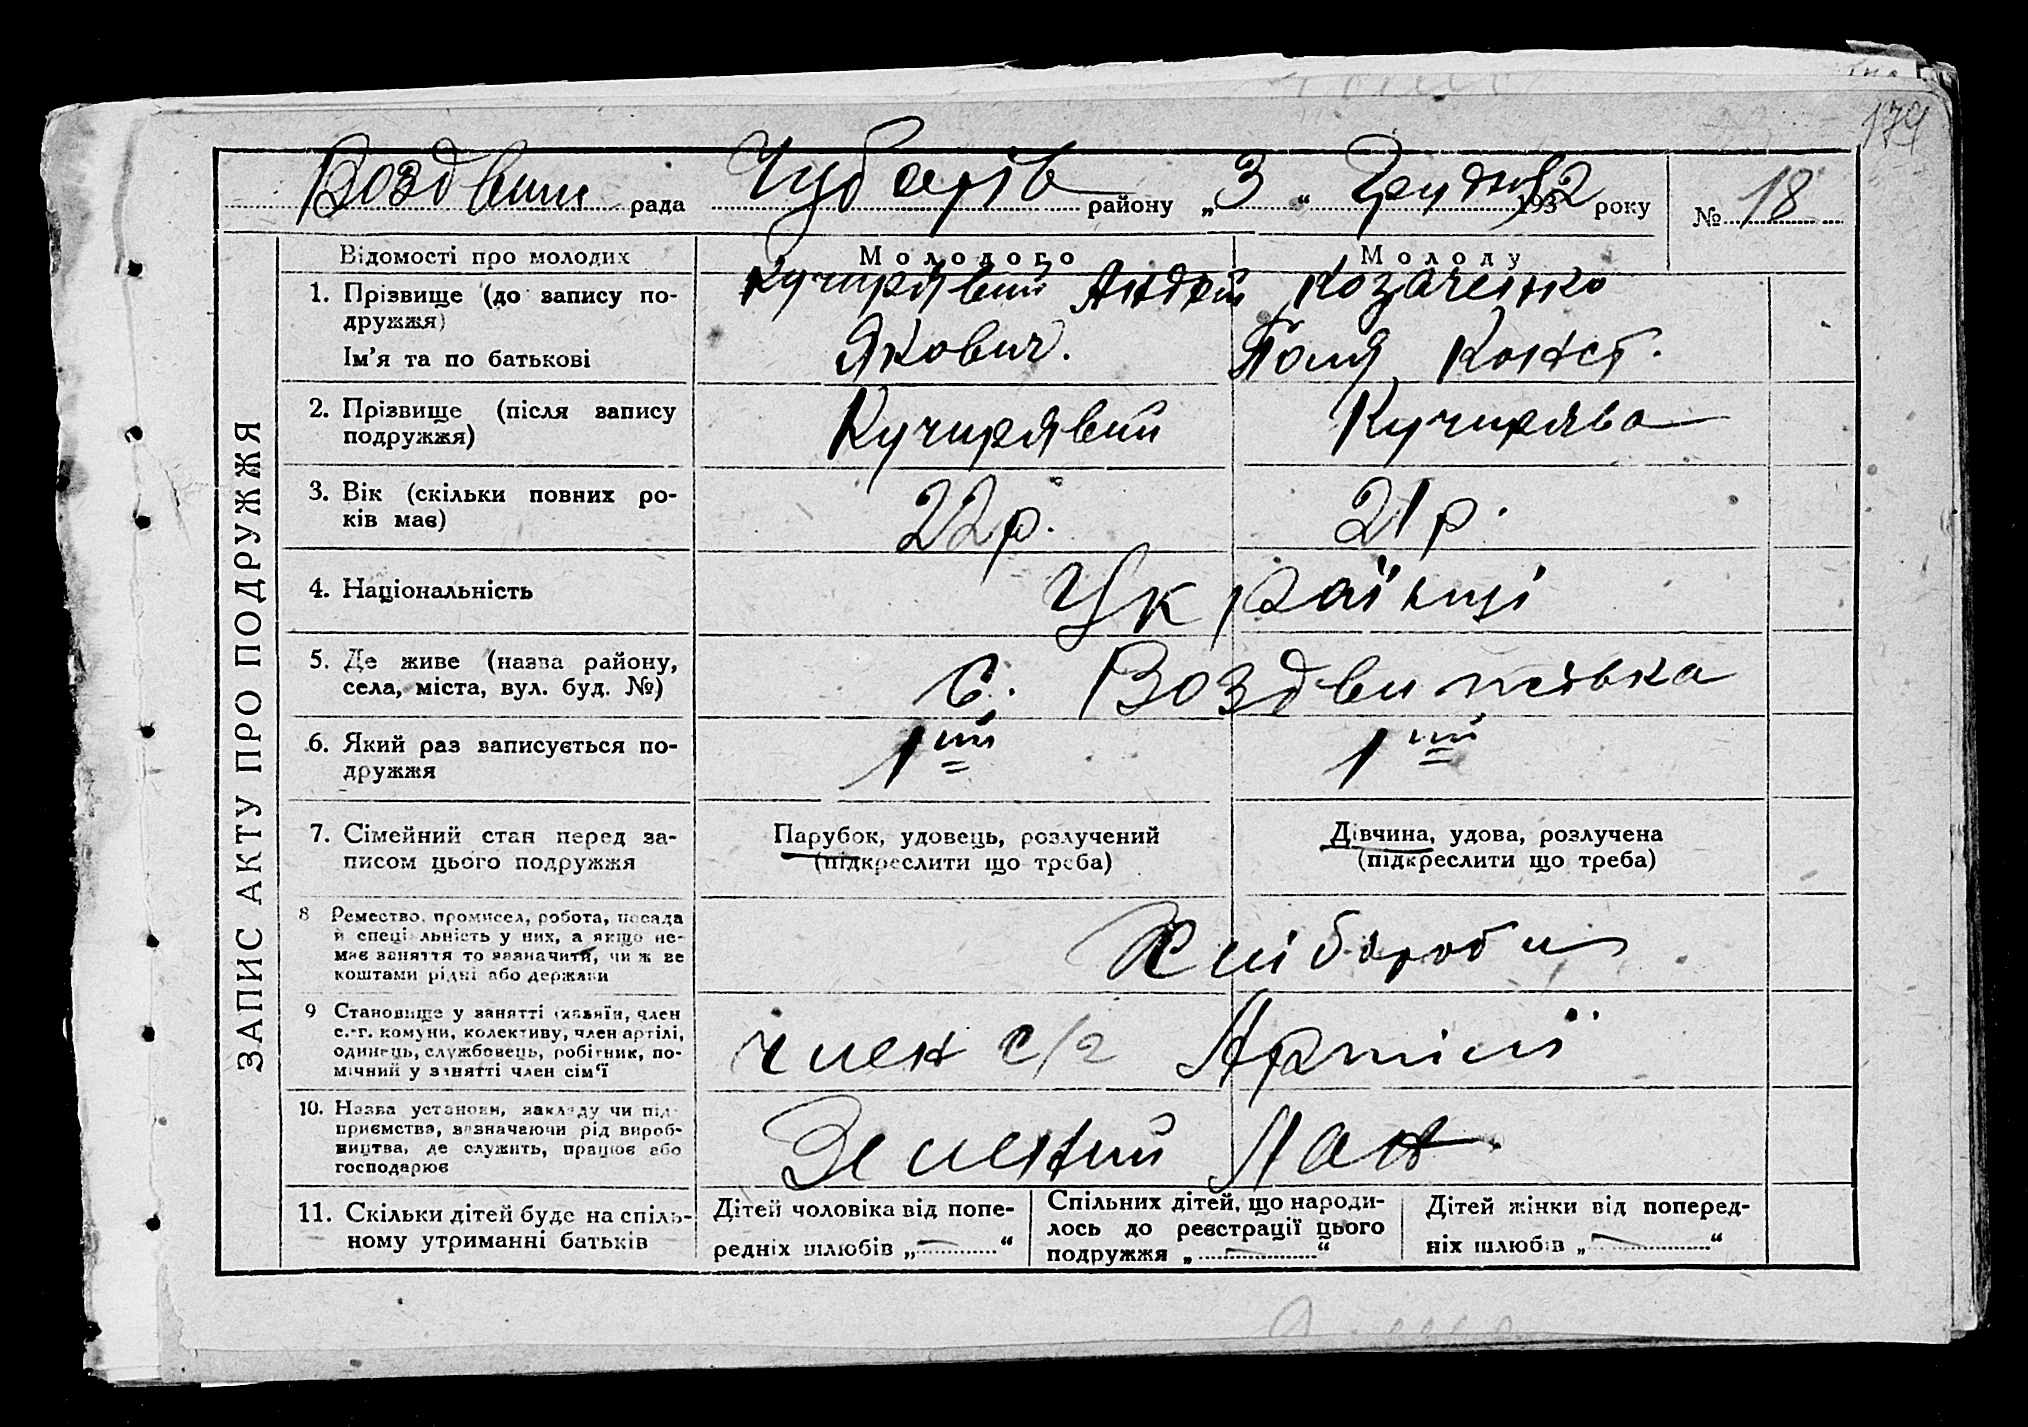 179
Воздвиж рада Чубарів району „3“ Грудня 1932 року № 18
ЗАПИС АКТУ ПРО ПОДРУЖЖЯ
Відомості про молодих
Молодого
Молоду
1. Прізвище (до запису по-
дружжя)
Ім'я та по батькові
Кучирявий Андрій
Якович.
Козаченко
Поля Конст.
2. Прізвище (після запису
подружжя)
Кучирявий
Кучирява
3. Вік (скільки повних ро-
ків має)
22 р.
21 р.
4. Національність
Українці
5. Де живе (назва району,
села, міста, вул. буд. №)
с. Воздвижівка
6. Який раз записується по-
дружжя
1ий
1ий
7. Сімейний стан перед за-
писом цього подружжя
Парубок, удовець, розлучений
(підкреслити що треба)
Дівчина, удова, розлучена
(підкреслити що треба)
8 Ремество, промисел, робота, посада
й спеціяльність у них, а якщо не-
має заняття то зазначити, чи ж ве
коштами рідні або держави
Хлібороби
9 Становище у занятті (хазяїн, член
с.-г. комуни, колективу, член артілі,
одинець, службовець, робітник, по-
мічний у занятті член сім'ї
член с/г Артілі
10. Назва установи, закладу чи під-
приємства, зазначаючи рід вироб-
ництва, де служить, працює або
господарює
Зелений Лан.
11. Скільки дітей буде на спіль-
ному утриманні батьків
Дітей чоловіка від попе-
редніх шлюбів „—“
Спільних дітей, що народи-
лось до реєстрації цього
подружжя „—“
Дітей жінки від поперед-
ніх шлюбів „—“